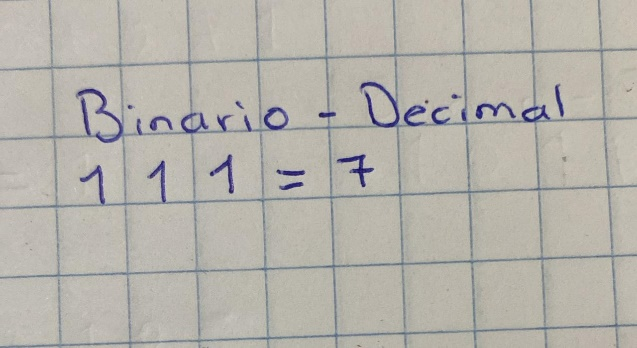 Binario - Decimal
1 1 1 = 7